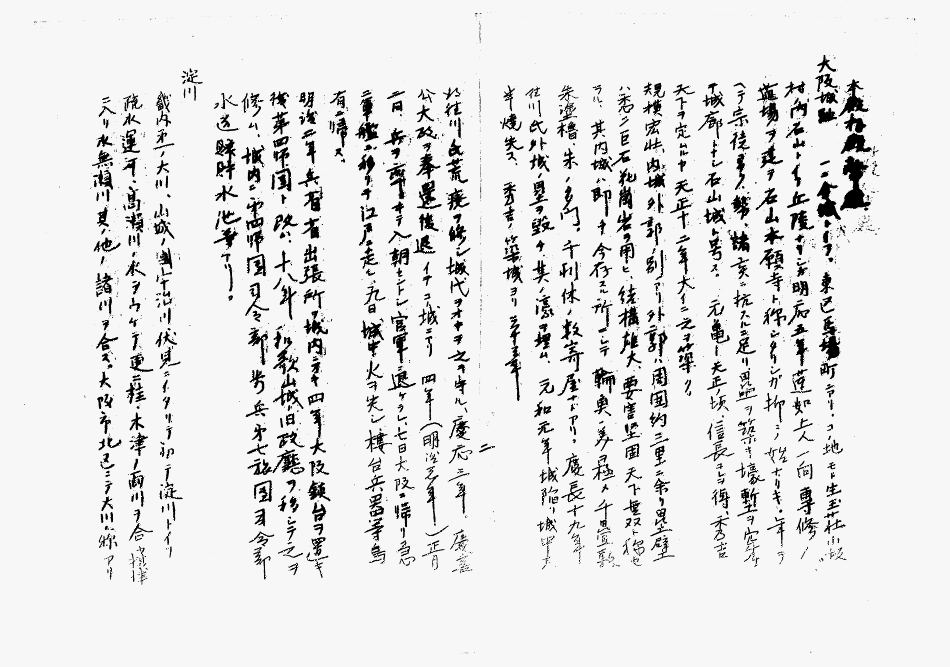 大阪城址 一ニ金城トイフ、東区馬場町ニアリ、コノ地モト生玉荘小坂
村ノ内石山トイフ丘陵ナリシヲ明応五年蓮如上人一向専修ノ
道場ヲ建テ石山本願寺ト称シタリシガ抑ミノ始ナリキ、年ヲ
ヘテ宗徒 勢、諸 ニ抗スルニ足リ塁壁ヲ築キ壕塹ヲ穿チ
城廓トナシ石山城ト号ス、元亀天正ノ頃、信長コレヲ得、秀吉
天下ヲ定ムルヤ天正十二年大イニ之ヲ築ク、
規模宏壮、内城外郭ノ別アリ外郭ハ周囲約三里ニ余リ塁壁
ハ悉ク巨石花崗岩ヲ用ヒ、結構雄大、要害堅固天下無双ト称セ
ラル、其内城ハ即チ今存スル所ニシテ輪奥ノ美ヲ極メ千畳敷
朱塗櫓、朱ノ多門、千利休ノ数寄屋ナドアリ、慶長十九年
徳川氏外城ノ塁ヲ毀チ其ノ濠ヲ埋ム、元和元年城陥リ城中大
半焼失ス、秀吉ノ築城ヨリ三十三年
二
徳川氏荒廃ヲ修シ城代ヲオキテ之ヲ守ル、慶応三年、慶喜
公大政ヲ奉還後退イテコノ城ニアリ 四年(明治元年)正月
二日、兵ヲ率ヰテ入朝セントシ官軍ニ退ケラレ七日大阪ニ帰リ急
ニ軍艦ニ移リテ江戸ニ走ル、九日城中火ヲ失シ楼台兵器等烏
有ニ帰ス、
明治二年兵部省出張所ヲ城内ニオキ四年大阪鎮台ヲ置キ
後第四師団ト改ム、十八年、和歌山城ノ旧政庁ヲ移シテ之ヲ
修ム、城内ニ第四師団司令部、歩兵第七旅団司令部
水道貯水池等アリ。
淀川
畿内第一ノ大川、山城ノ国宇治川伏見ニイタリテ初テ淀川トイフ
疏水運河、高瀬川ノ水ヲウケテ更ニ桂、木津ノ両川ヲ合 摂津
ニ入リ水無瀬川其ノ他ノ諸川ヲ合ス、大阪市北区ニテ大川ノ称アリ